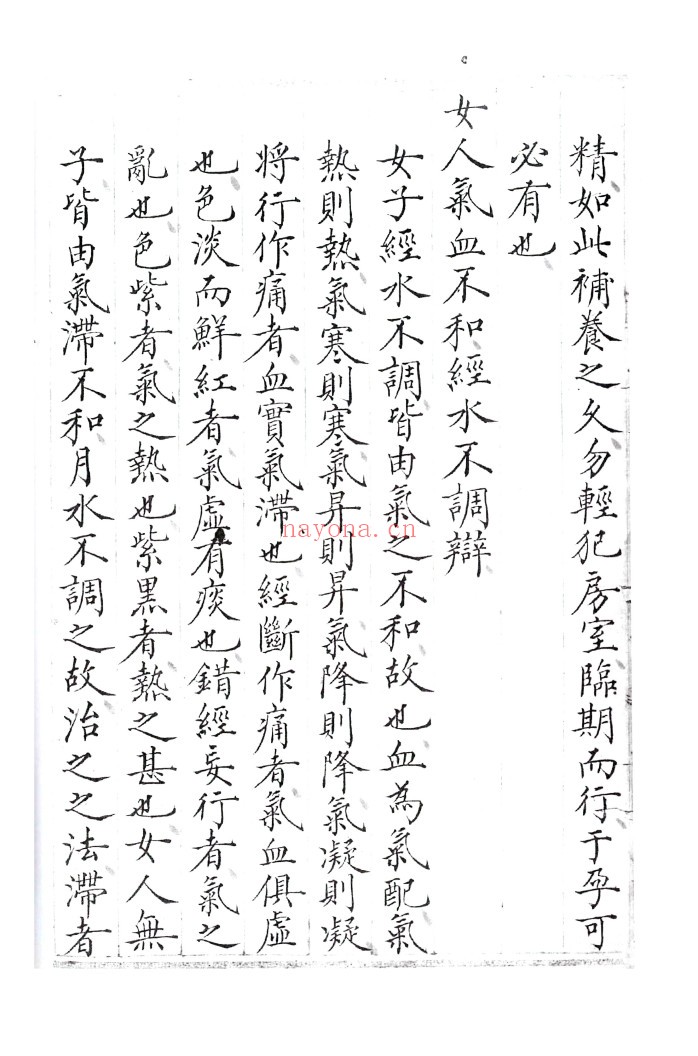 精如此補養之久勿輕犯房室臨期而行于孕可
必有也
女人氣血不和經水不調辯
女子經水不調皆由氣之不和故也血為氣配氣
熱則熱氣寒則寒氣昇則昇氣降則降氣凝則凝
將行作痛者血實氣滯也經斷作痛者氣血俱虛
也色淡而鮮紅者氣虛有痰也錯經妄行者氣之
亂也色紫者氣之熱也紫黑者熱之甚也女人無
子皆由氣滯不和月水不調之故治之之法滯者
nayona.cn